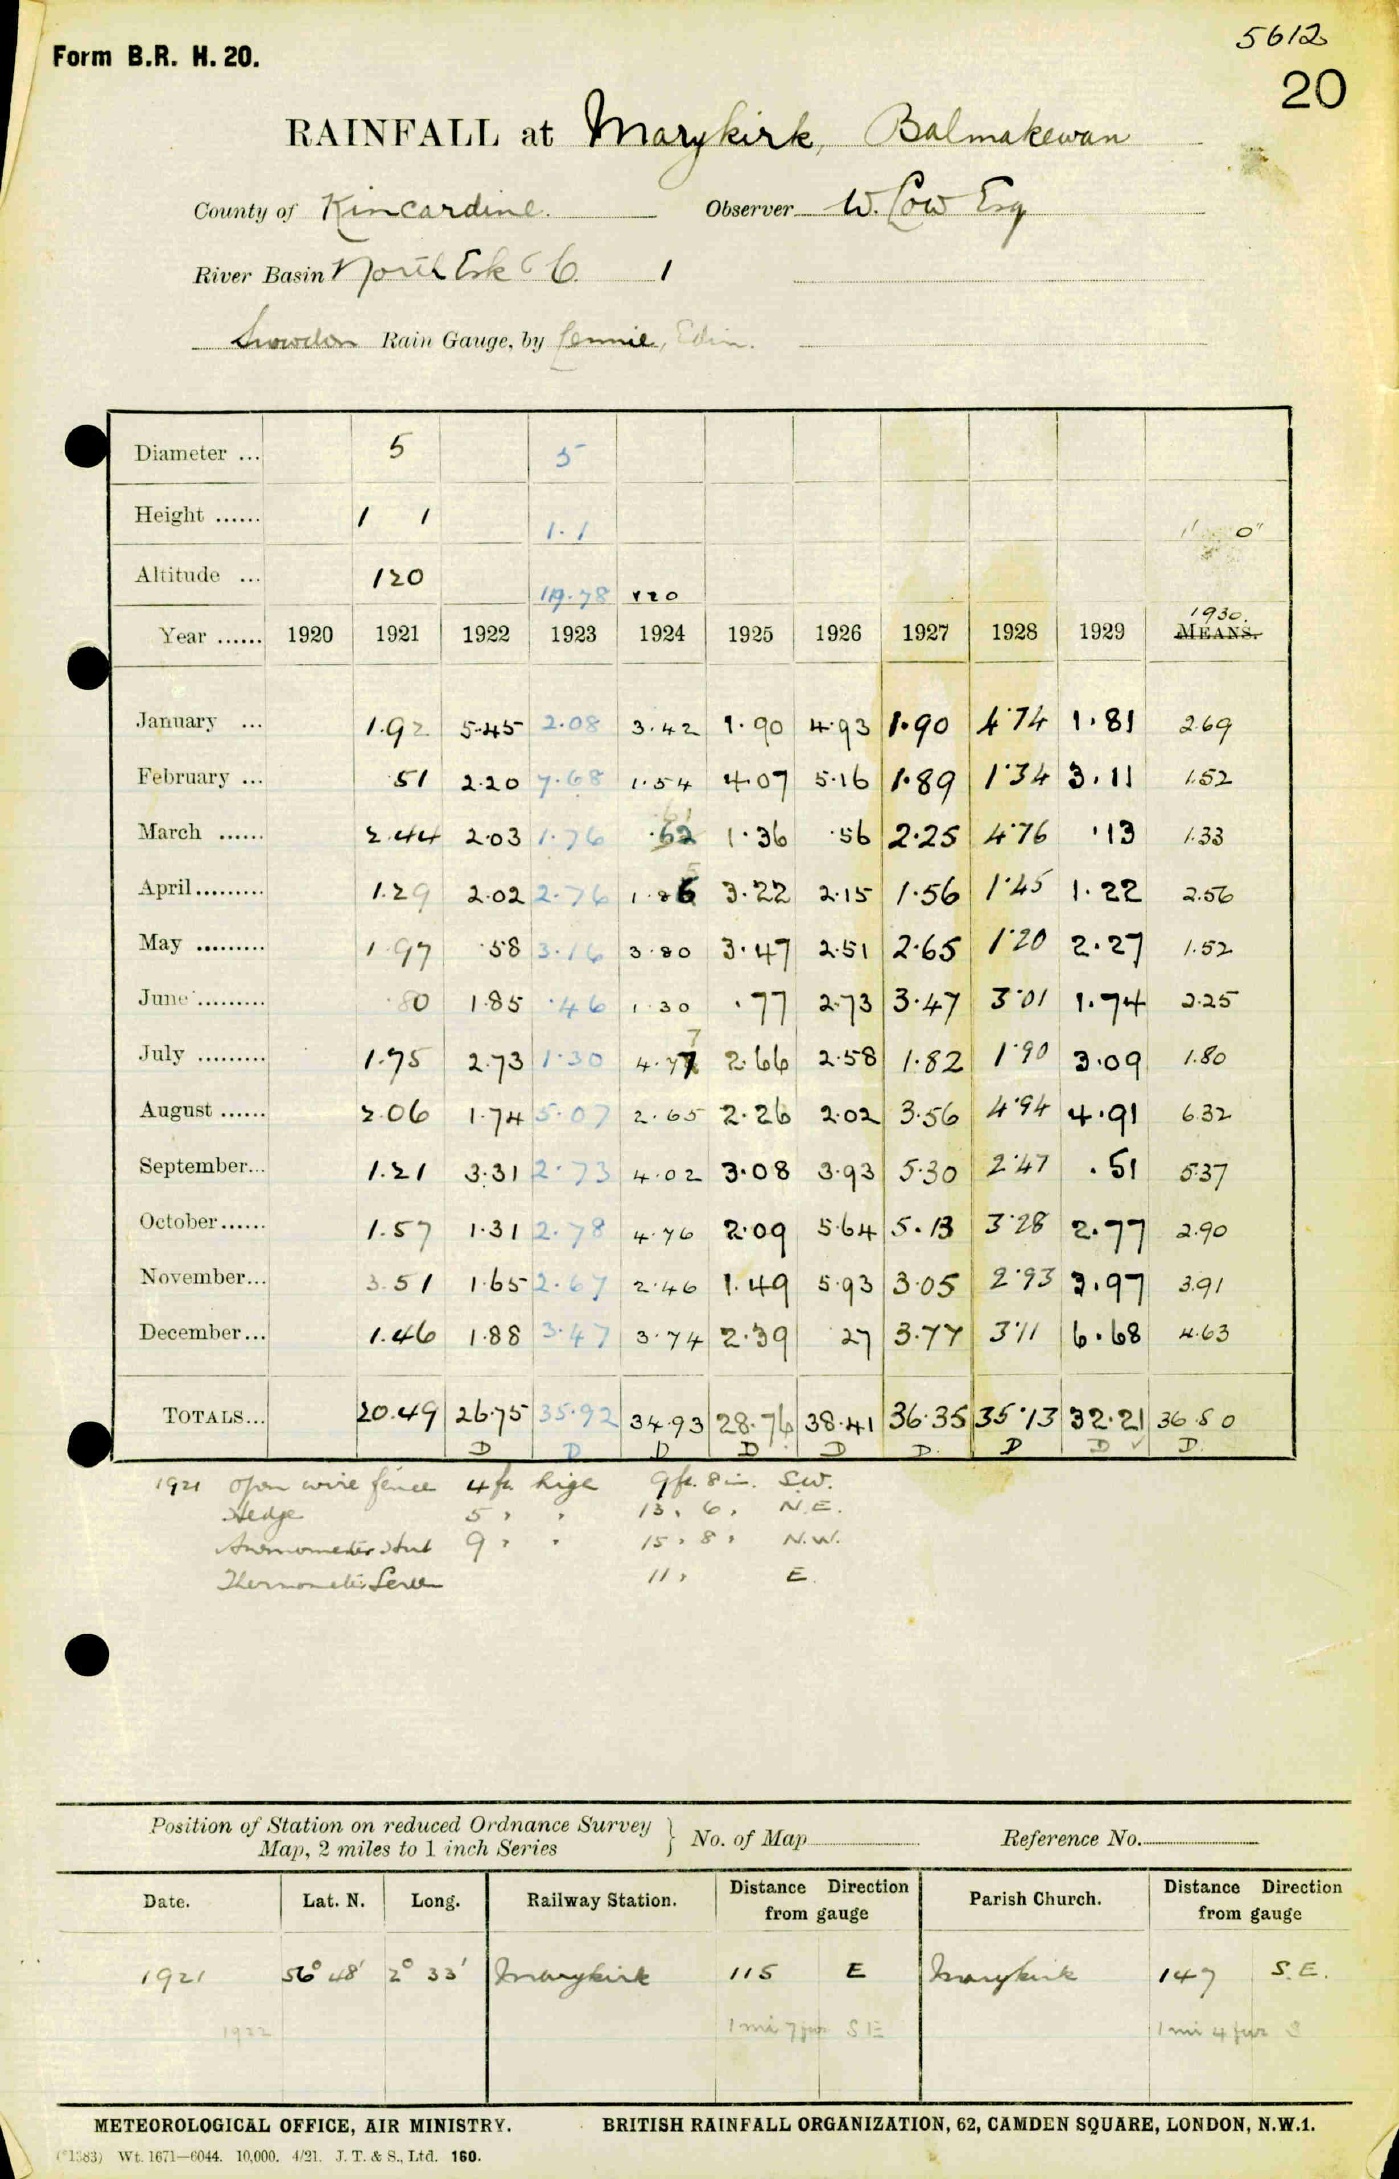 5612
Form B.R. H. 20.
20
RAINFALL at Marykirk, Balmakewan
County of Kincardine. Observer W. Low Esq
River Basin North Esk 1
Snowdon Rain Gauge, by Lennie, Edin.
Diameter ... 5 5
Height ...... 1 1 1.1 1' 0"
Altitude ... 120 119.78 120
1930.
Year ...... 1920 1921 1922 1923 1924 1925 1926 1927 1928 1929 MEANS.
January ... 1.92 5.45 2.08 3.42 1.90 4.93 1.90 4.74 1.81 2.69
February ... .51 2.20 7.68 1.54 4.07 5.16 1.89 1.34 3.11 1.52
March ...... 2.44 2.03 1.76 .62 1.36 .56 2.25 4.76 .13 1.33
April......... 1.29 2.02 2.76 1.86 3.22 2.15 1.56 1.45 1.22 2.56
May ......... 1.97 .58 3.16 3.80 3.47 2.51 2.65 1.20 2.27 1.52
June ......... .80 1.85 .46 1.30 .77 2.73 3.47 3.01 1.74 2.25
July ......... 1.75 2.73 1.30 4.77 2.66 2.58 1.82 1.90 3.09 1.80
August ...... 2.06 1.74 5.07 2.65 2.26 2.02 3.56 4.94 4.91 6.32
September... 1.21 3.31 2.73 4.02 3.08 3.93 5.30 2.47 .51 5.37
October...... 1.57 1.31 2.78 4.76 2.09 5.64 5.13 3.28 2.77 2.90
November... 3.51 1.65 2.67 2.46 1.49 5.93 3.05 2.93 3.97 3.91
December... 1.46 1.88 3.47 3.74 2.39 .27 3.77 3.11 6.68 4.63
TOTALS... 20.49 26.75 35.92 34.93 28.76 38.41 36.35 35.13 32.21 36.80
D D D D D D D D D
1921 Open wire fence 4 ft. high 9 ft. 8 in. S.W.
Hedge 5 " " 13 " 6 " N.E.
Anemometer Hut 9 " " 15 " 8 " N.W.
Thermometer Screen 11 " E.
Position of Station on reduced Ordnance Survey
Map, 2 miles to 1 inch Series } No. of Map Reference No.
Date. Lat. N. Long. Railway Station. Distance Direction from gauge Parish Church. Distance Direction from gauge
1921 56° 48' 2° 33' Marykirk 115 E Marykirk 147 S.E.
1922 1 mi 7 fur SE 1 mi 4 fur S
METEOROLOGICAL OFFICE, AIR MINISTRY. BRITISH RAINFALL ORGANIZATION, 62, CAMDEN SQUARE, LONDON, N.W.1.
(*1383) Wt. 1671—6044. 10,000. 4/21. J. T. & S., Ltd. 160.